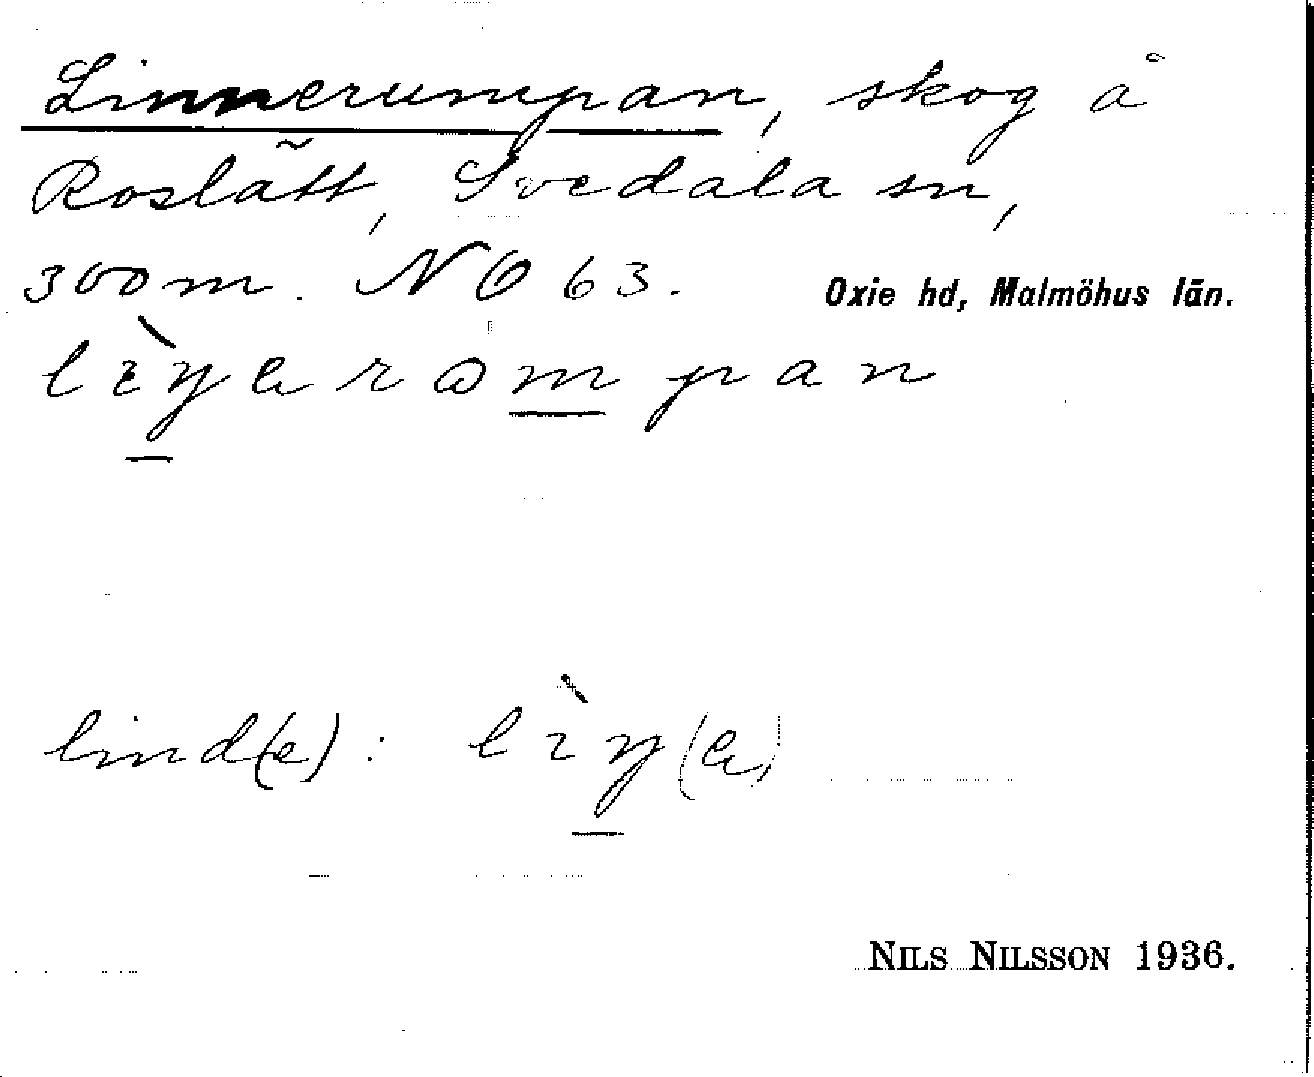 Linnerumpan, skog å
Roslätt, Svedala sn,
300 m. NO 63. Oxie hd, Malmöhus län.
lìŋərɷmpan
lind(e): lìŋ(ə)
NILS NILSSON 1936.